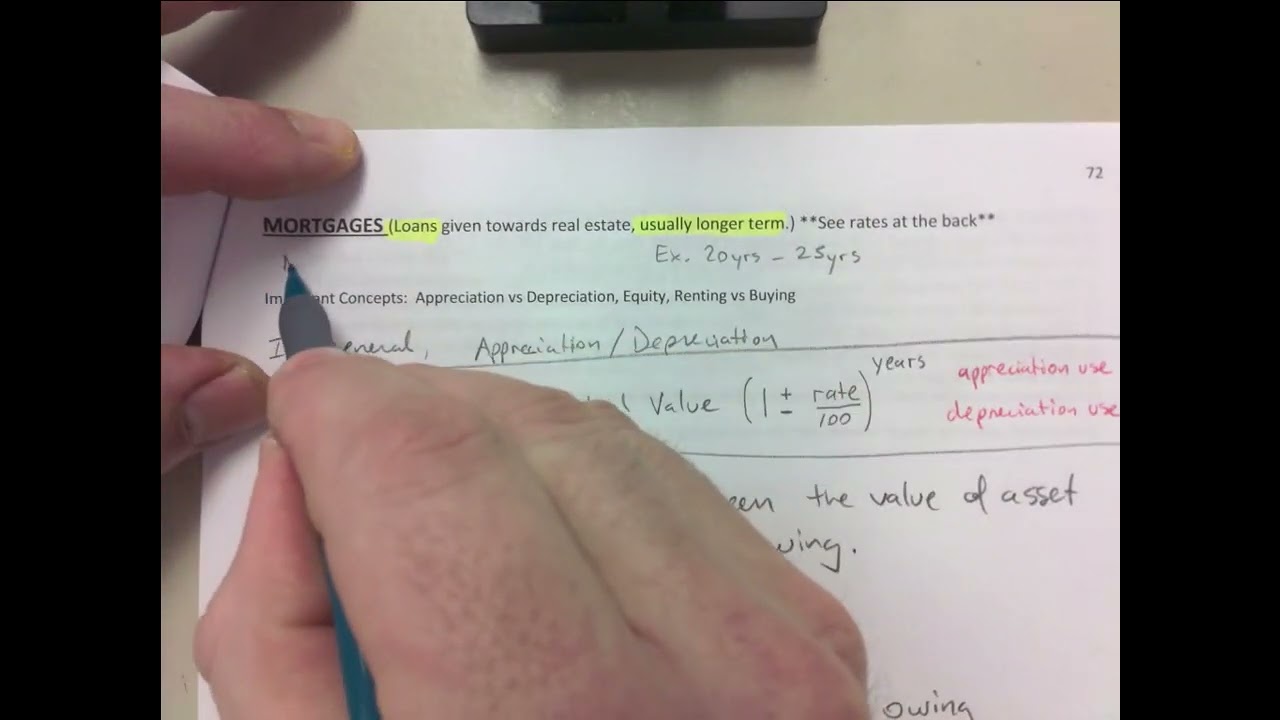 72
MORTGAGES (Loans given towards real estate, usually longer term.) **See rates at the back**
Ex. 20yrs - 25yrs
Concepts: Appreciation vs Depreciation, Equity, Renting vs Buying
Appreciation / Depreciation
years
appreciation use
Value (1 ± rate/100)
depreciation use
the value of asset
owing